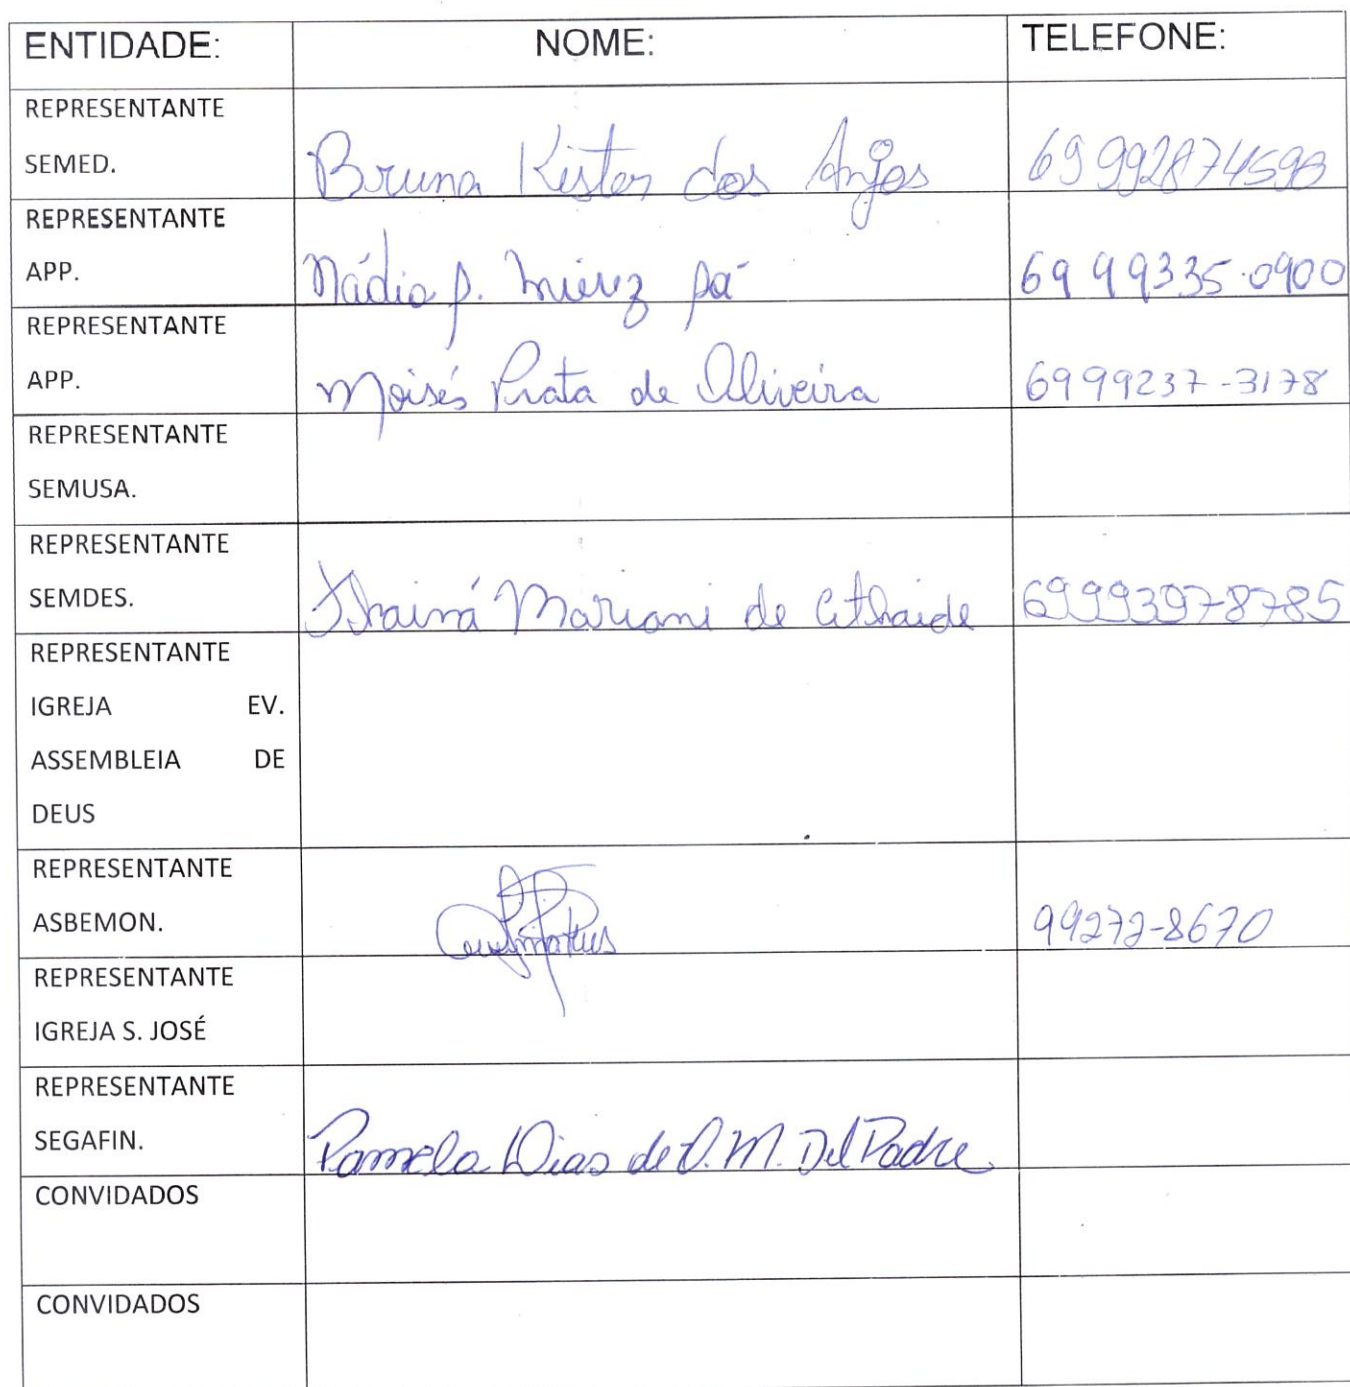 ENTIDADE: NOME: TELEFONE:
REPRESENTANTE
SEMED. Bruna Kister dos Anjos 69 992874593
REPRESENTANTE
APP. Nádia p. Sá 69 99335-0900
REPRESENTANTE
APP. Moisés Prata de Oliveira 6999237-3178
REPRESENTANTE
SEMUSA.
REPRESENTANTE
SEMDES. Thainá Mariani de Athaide 69993978785
REPRESENTANTE
IGREJA EV.
ASSEMBLEIA DE
DEUS
REPRESENTANTE
ASBEMON. 99272-8670
REPRESENTANTE
IGREJA S. JOSÉ
REPRESENTANTE
SEGAFIN. Pamela Dias de O. M. Del Padre
CONVIDADOS
CONVIDADOS